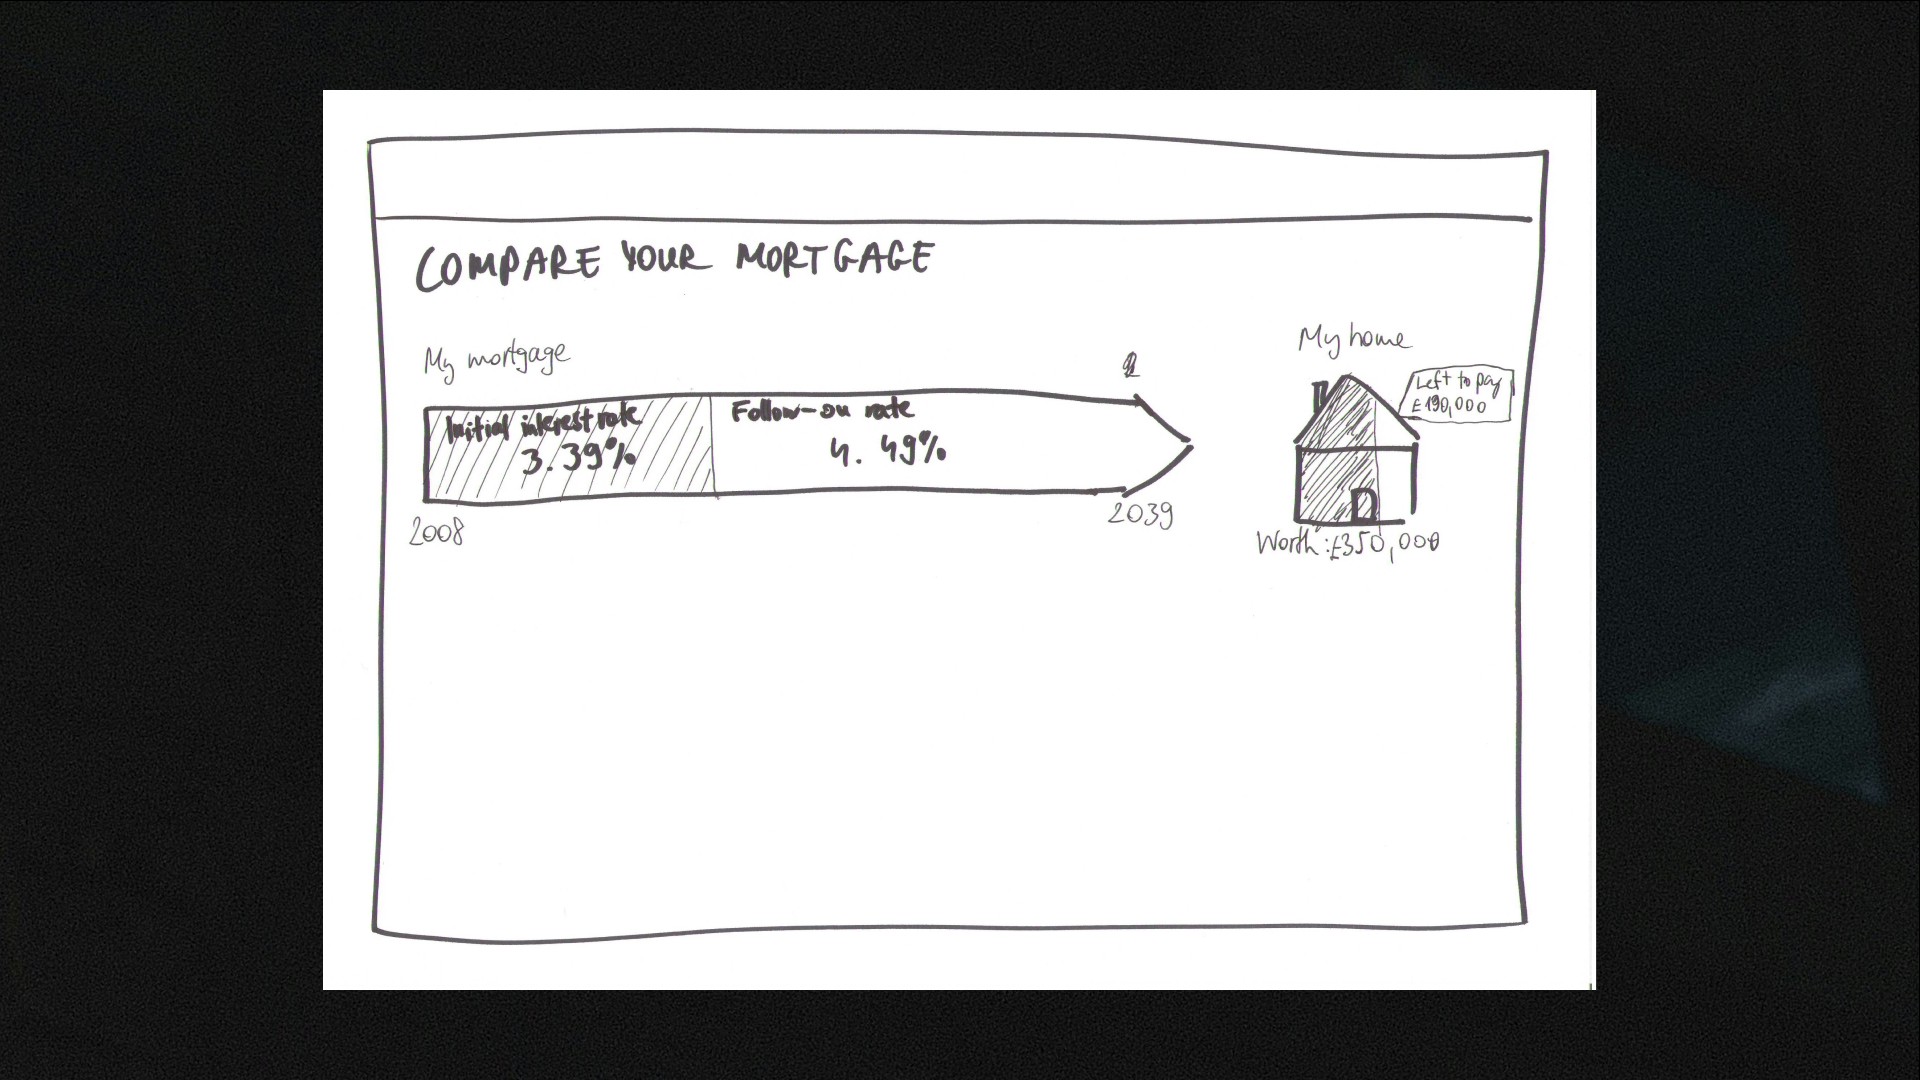 COMPARE YOUR MORTGAGE
My mortgage
Initial interest rate
3.39%
Follow-on rate
4.49%
2008
2039
My home
Left to pay
£190,000
Worth: £350,000